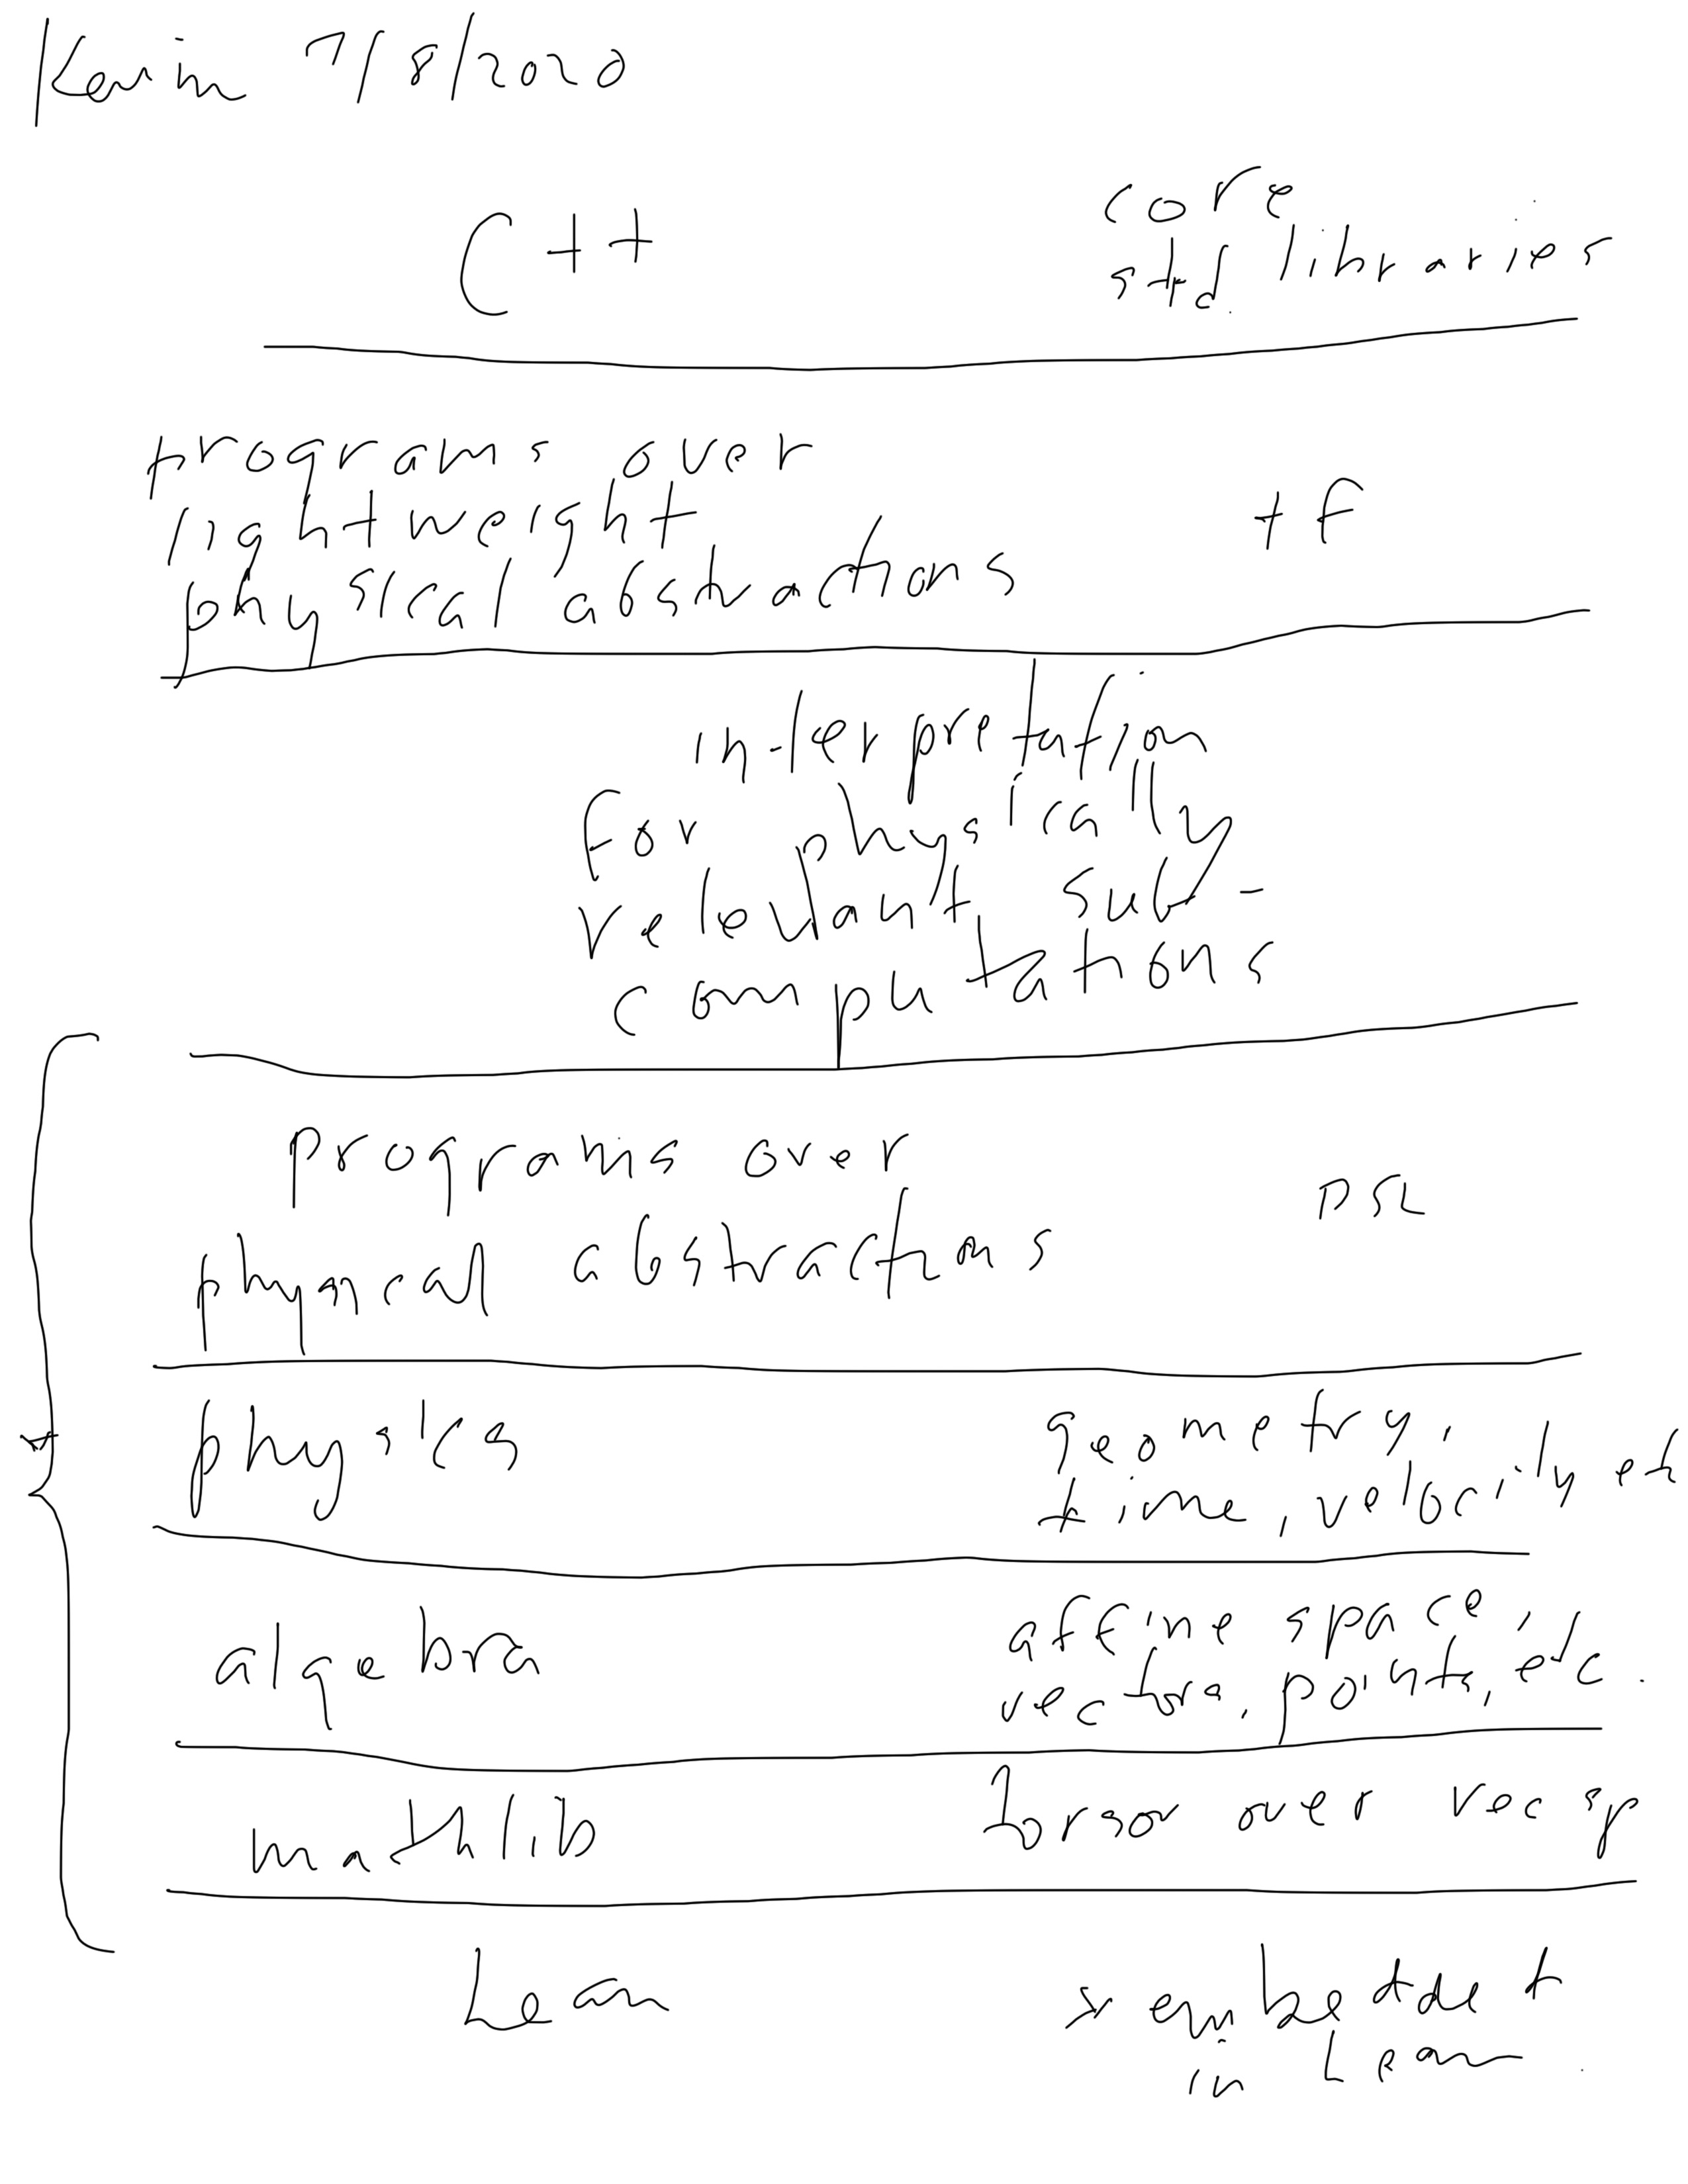 Kevin 7/8/2020
C++
core
std libraries
programs over
lightweight
physical abstractions
tf
interpretation
for physically
relevant sub-
computations
programs over
physical abstractions
DSL
physics
geometry,
time, velocity, etc
algebra
affine space,
vectors, points, etc.
mathlib
torsor over vec sp
Lean
* embedded
in Lean